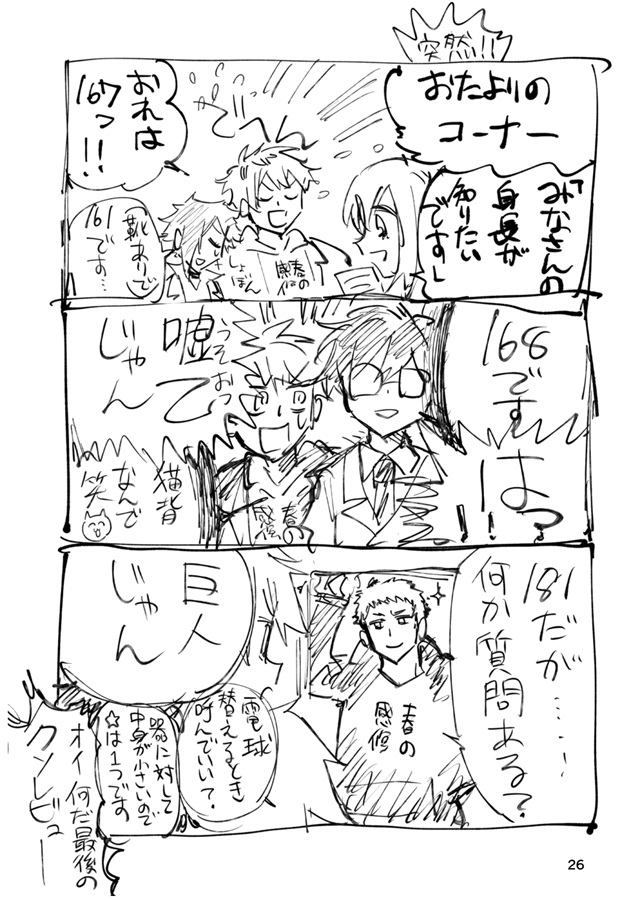 突然!!
おたよりの
コーナー
「みなさんの
身長が
知りたい
です」
おれは
167っ!!
靴ありで
161です…
春の
感修
168です
はっ?
!!
嘘
じゃん
猫背
なんで
笑
春の
感修
181だが……!
何か質問ある?
春の
感修
巨人
じゃん
電球
替えるとき
呼んでいい?
器に対して
中身が小さいので
☆は1つです
オイ何だ最後の
クソレビュー
26